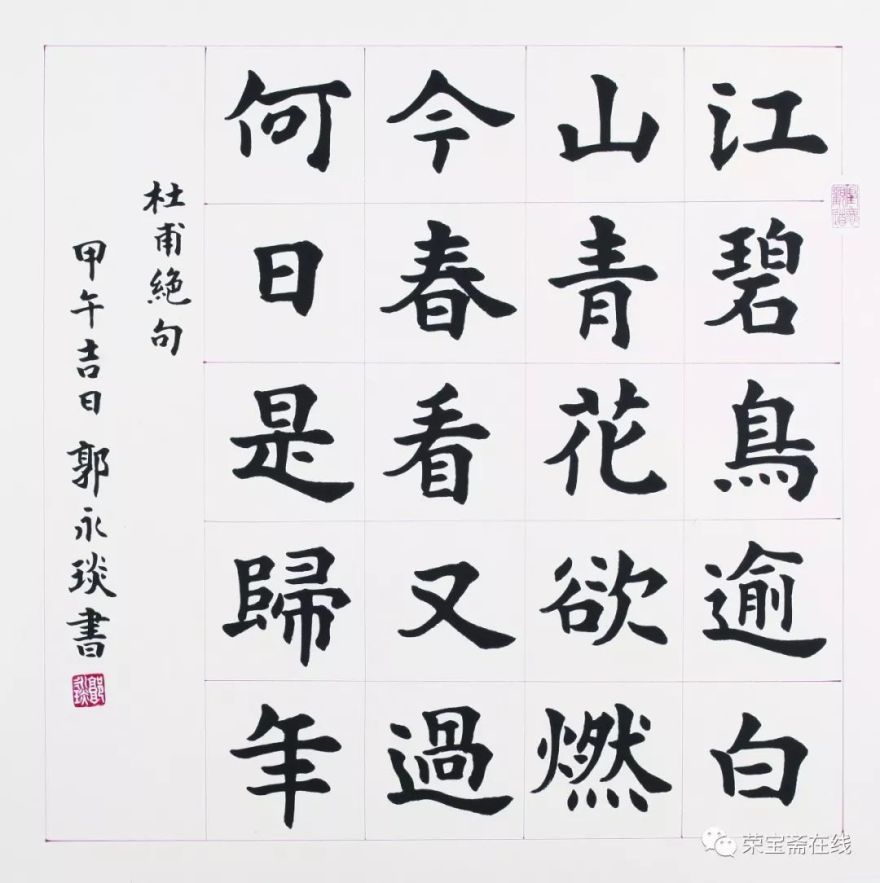 江碧鳥逾白
山青花欲燃
今春看又過
何日是歸年
杜甫絕句
甲午吉日 郭永琰書
荣宝斋在线